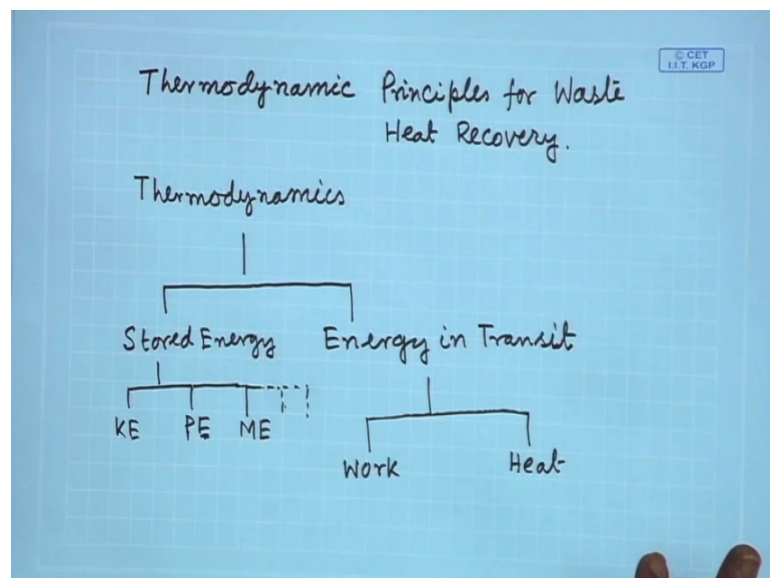 © CET
I.I.T. KGP
Thermodynamic Principles for Waste
Heat Recovery.
Thermodynamics
Stored Energy Energy in Transit
KE PE ME
Work Heat